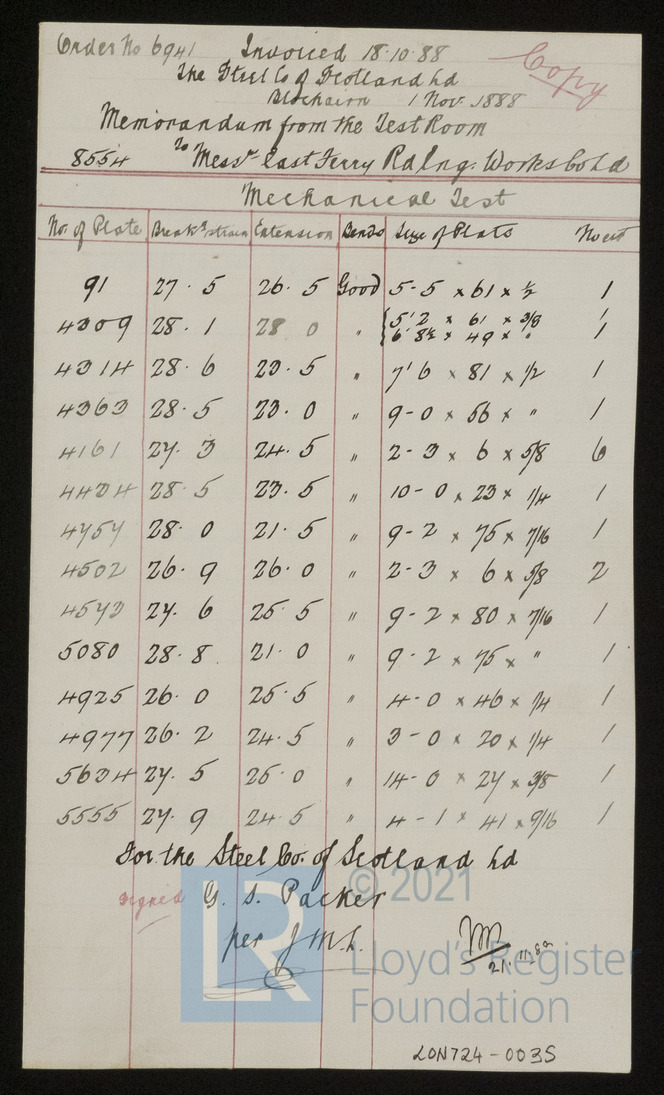 Order No 6941 Invoiced 18·10·88
Copy
The Steel Co of Scotland Ld
Blochairn 1 Nov. 1888
Memorandum from the Test Room
8554 To Messrs East Ferry Rd Eng. Works Co Ld
Mechanical Test
No. of Plate Breakg strain Extension Bends Size of Plats No
91 27·5 26·5 Good 5-5 x 61 x 1/2 1
4309 28·1 28 0 " 5'2 x 61 x 3/8 1
6'8½ x 49 x " 1
4314 28·6 23·5 " 7'6 x 81 x 1/2 1
4363 28·5 23·0 " 9-0 x 56 x " 1
4161 27·3 24·5 " 2-3 x 6 x 5/8 6
4434 28·5 23·5 " 10-0 x 23 x 1/4 1
4757 28·0 21·5 " 9-2 x 75 x 7/16 1
4502 26·9 26·0 " 2-3 x 6 x 5/8 2
4543 27·6 25·5 " 9-2 x 80 x 7/16 1
5080 28·8 21·0 " 9-2 x 75 x " 1
4925 26·0 25·5 " 4-0 x 46 x 1/4 1
4977 26·2 24·5 " 3-0 x 20 x 1/4 1
5634 27·5 25·0 " 14-0 x 27 x 3/8 1
5555 27·9 24·5 " 4-1 x 41 x 9/16 1
For the Steel Co. of Scotland Ld
© 2021
signed G. S. Packer
per J
LR
Lloyd's Register
Foundation
LON724-0035